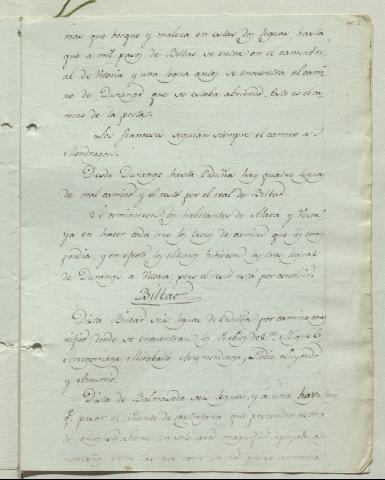 mas que bosque y maleza en estas dos leguas hasta
que a mil pasos de Bilbao se entra en el camino re
al de Vitoria y una legua antes se encuentra el cami
no de Durango que se estaba abriendo. Este es el ca
mino de la posta.
Los franceses seguian siempre el camino a
Mondragon.
Desde Durango hasta Orduña hay quatro leguas
de mal camino y el resto por el real de Bilbao
Se convinieron los habitantes de Alava y Vizca
ya en hacer cada uno los trozos de camino que les corres
pondia, y en efecto los ultimos hicieron las tres leguas
de Durango a Vitoria; pero el resto esta por concluir
Bilbao
Dista Bilbao seis leguas de Orduña por camino mag
nifico donde se encuentran los Pueblos de Sn. Miguel
Arrigorriaga Miraballes Areta Luyando
y Amurrio.
Dista de Balmaseda seis leguas, y a una hora hay
qe. pasar el Puente de Castrejana que pretenden es obra
de un solo arco magnifico apoyado
montañas entre las que corre